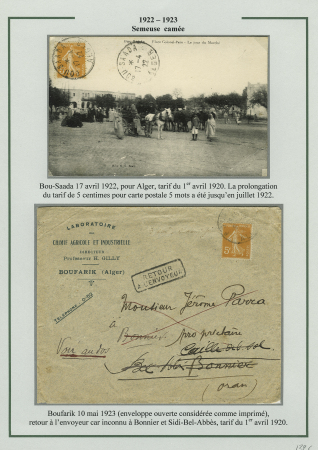 1922 – 1923
Semeuse camée
BOU SAADA
17-4
22
Bou-Saada 17 avril 1922, pour Alger, tarif du 1er avril 1920. La prolongation
du tarif de 5 centimes pour carte postale 5 mots a été jusqu'en juillet 1922.
LABORATOIRE
DE
CHIMIE AGRICOLE ET INDUSTRIELLE
Professeur H. GILLY
BOUFARIK (Alger)
RETOUR
A L'ENVOYEUR
Monsieur Jérôme Parra
à Bonnier propriétaire
Voir au dos
Sidi Bel
(Oran)
Boufarik 10 mai 1923 (enveloppe ouverte considérée comme imprimé),
retour à l'envoyeur car inconnu à Bonnier et Sidi-Bel-Abbès, tarif du 1er avril 1920.